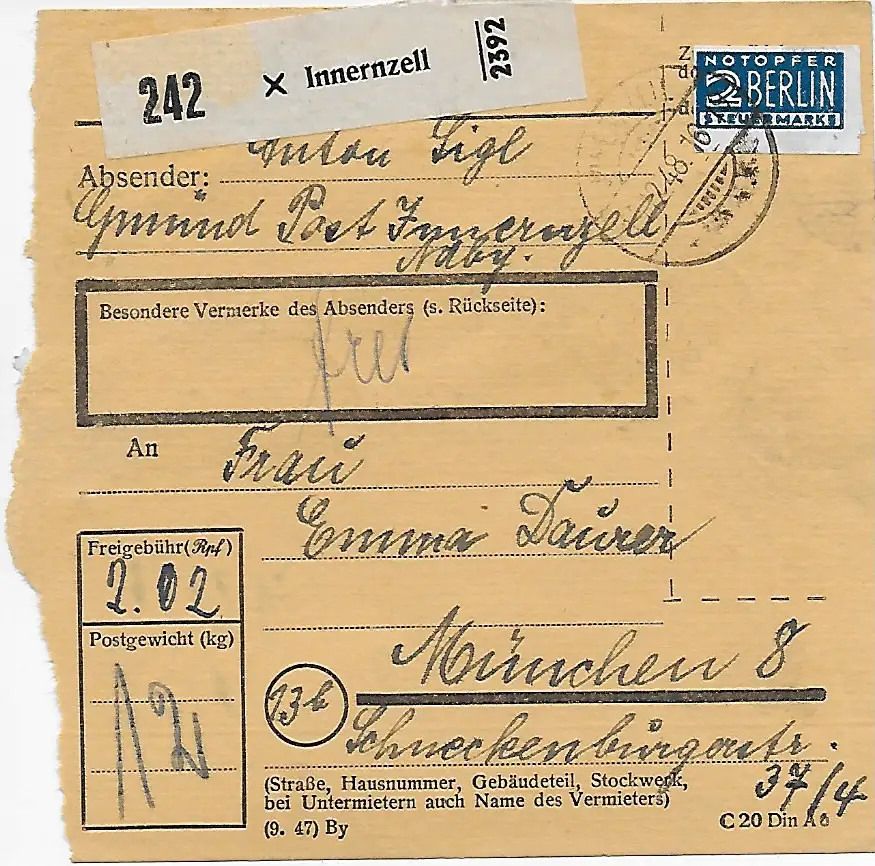 242 × Innernzell 2392
NOTOPFER
2 BERLIN
STEUERMARKE
Absender: Anton Sigl
Gmünd Post Innernzell
Ndby.
Besondere Vermerke des Absenders (s. Rückseite):
frei
An Frau
Emma Daurer
Freigebühr (Rpf)
2.02
Postgewicht (kg)
12
München 8
13b
Schneckenburgerstr.
37/4
(Straße, Hausnummer, Gebäudeteil, Stockwerk,
bei Untermietern auch Name des Vermieters)
(9. 47) By
C 20 Din A6